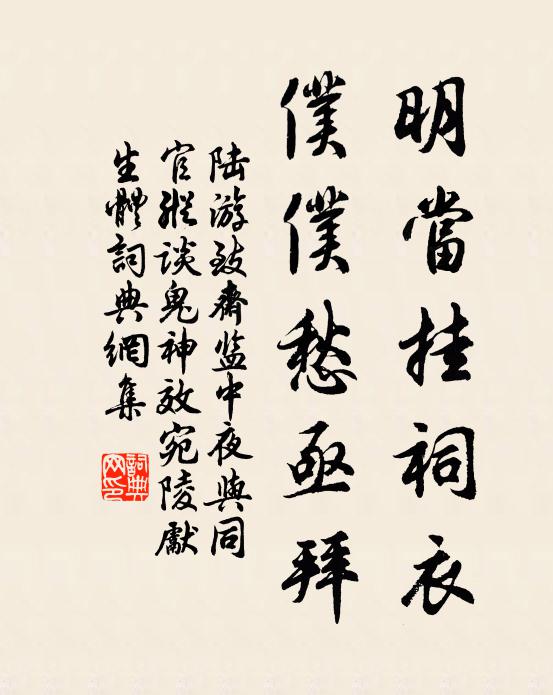 明當挂祠衣
僕僕愁亟拜
陆游致齋监中夜與同
官縱谈鬼神效宛陵獻
生體詞典網集
詞典
网印